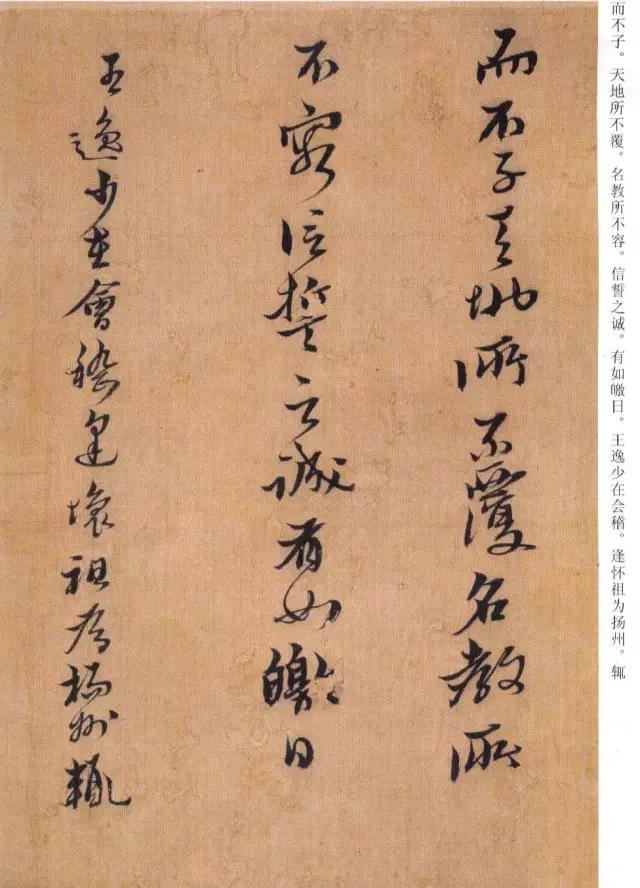 而不子。天地所不覆。名教所不容。信誓之诚。有如皦日。王逸少在会稽。逢怀祖为扬州。辄
而不子天地所不覆名教所
不容信誓之誠有如皦日
王逸少在會稽逢壞祖為楊州輒